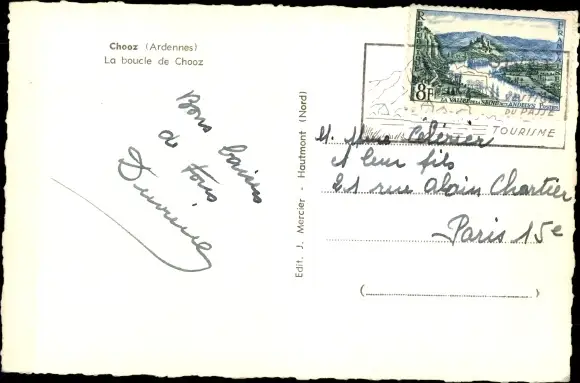 Chooz (Ardennes)
La boucle de Chooz
Bons baisers
de
Tous
Edit. J. Mercier - Hautmont (Nord)
8F
LA VALLÉE DE LA SEINE AUX ANDELYS
POSTES
DU PASSÉ
TOURISME
M. Mme
et leur fils
21 rue Alain Chartier
Paris 15e